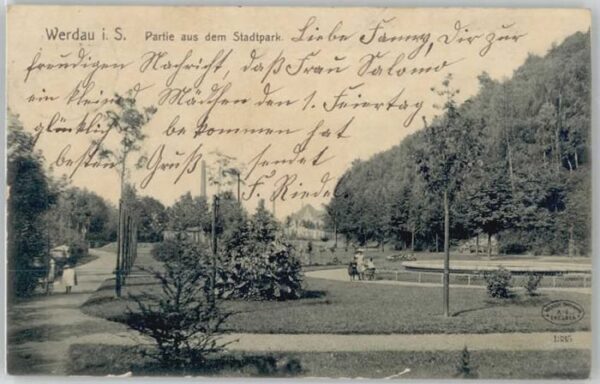 Werdau i. S. Partie aus dem Stadtpark. Liebe Fanny, Dir zur
freudigen Nachricht, daß Frau Salomo
ein kleines Mädchen den 1. Feiertag
glücklich bekommen hat
besten Gruß sendet
F. Riedel.